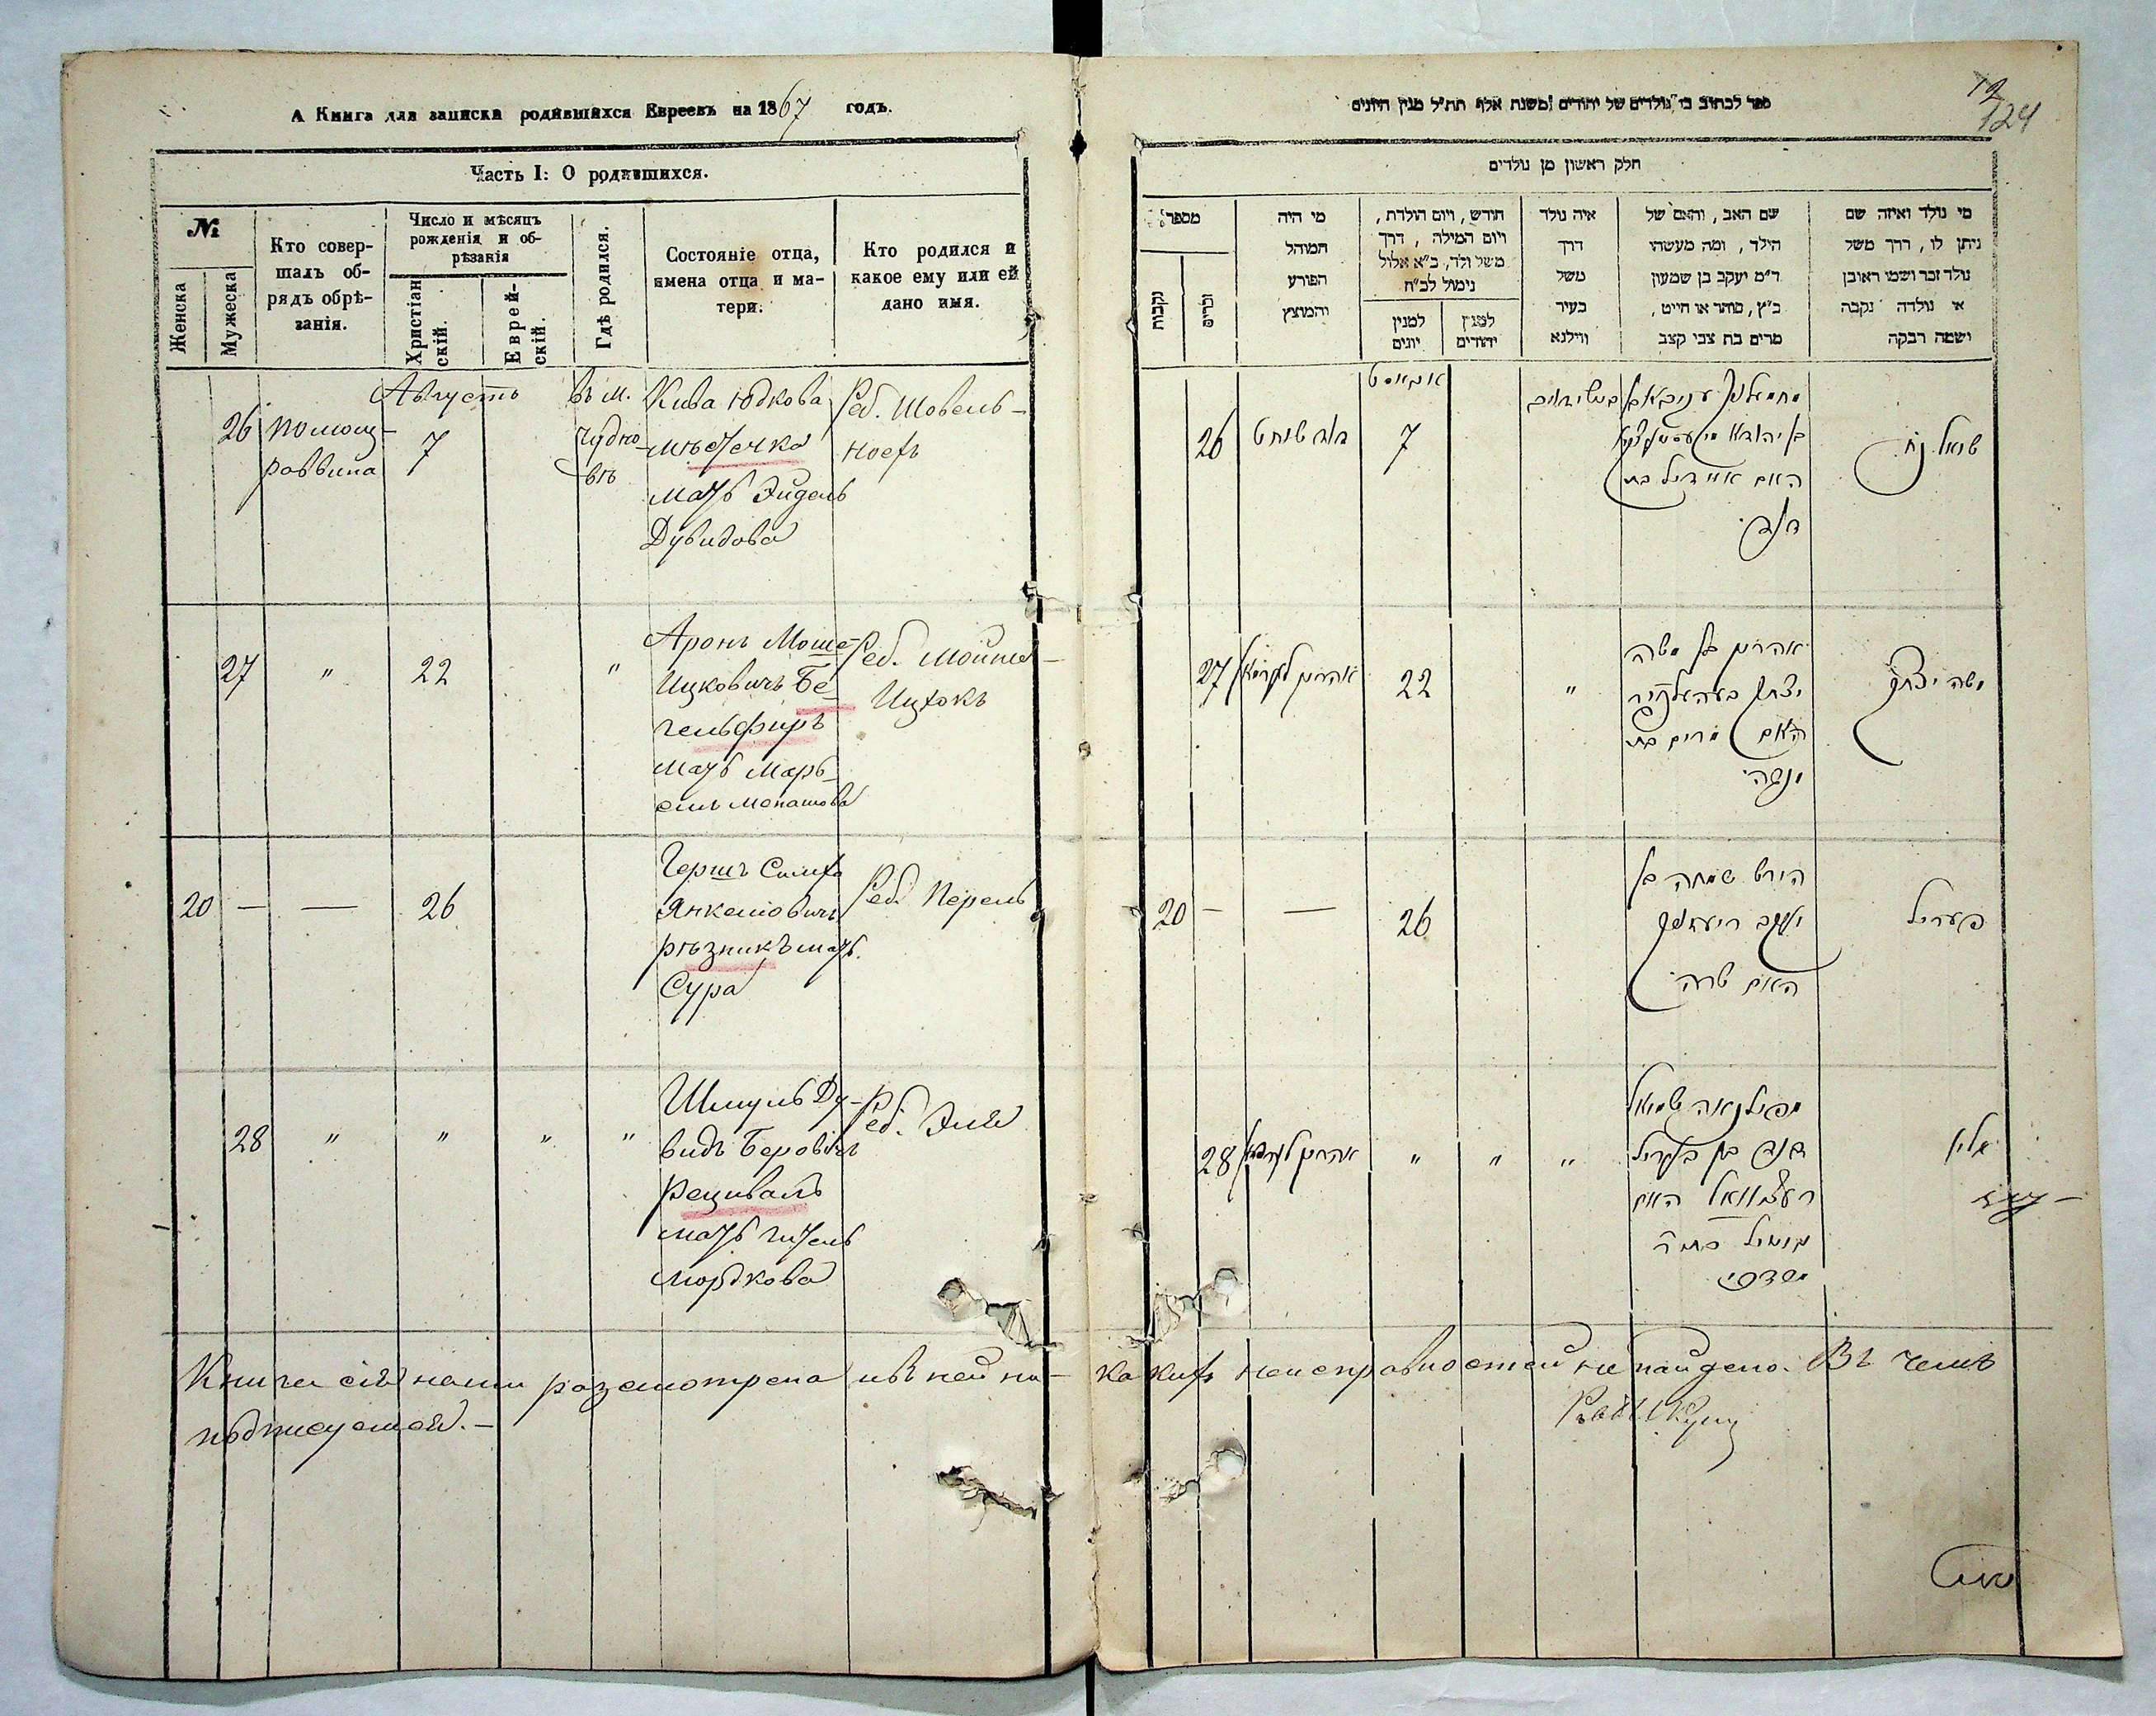 А Книга для записки родившихся Евреевъ на 1867 годъ.
Часть I: О родившихся.
№
Женска
Мужеска
Кто совер-
шалъ об-
рядъ обрѣ-
занія.
Число и мѣсяцъ
рожденія и об-
рѣзанія
Христіан
скій.
Еврей-
скій.
Гдѣ родился.
Состояніе отца,
имена отца и ма-
тери.
Кто родился и
какое ему или ей
дано имя.
Августъ
26
помощ-
раввина
7
въ м.
Чудно-
въ
Кива Юдкова
мѣстечко
мать Эйдель
Дувидова
Реб. Шовель-
Ноехъ
27
"
22
"
Аронъ Моше-
Ицковичъ Бе-
гельфиръ
мать Марь-
емъ Монашова
Реб. Мойше-
Ицхокъ
20 — — 26
Гершъ Симха
Янкелювичъ
рѣзникъ мать
Сура
Реб. Перель
28 " " " "
Шмуль Ду-
видъ Беровичъ
Рецивалъ
мать Гитель
Мордкова
Реб. Элия
Книга сія нами разсмотрена и въ ней ни-
какихъ неисправностей не найдено. Въ чемъ
подписуемся.—
12
124
ספר לכתוב בו נולדים של יהודים משנת אלף תת״ל מנין היונים
חלק ראשון מן נולדים
מספר
נקבות
זכרים
מי היה
המוהל
הפורע
והמוצץ
חודש, ויום הולדת,
ויום המילה, דרך
משל ולד, כ״א אלול
נימול לכ״ח
למנין
יונים
למנין
יהודים
איה נולד
דרך
משל
בעיר
ווילנא
שם האב, והאם של
הילד, ומה מעשהו
ד״מ יעקב בן שמעון
כ״ץ, סוחר או חייט,
מרים בת צבי קצב
מי נולד ואיזה שם
ניתן לו, דרך משל
נולד זכר ושמו ראובן
או נולדה נקבה
ושמה רבקה
אוגוסט
26
דוד שוחט
7
האם איידיל בת
דוד
שואל נח
27
אהרון
22
"
אהרון בן משה
יצחק
האם מרים בת
מנשה
משה יצחק
20 — — 26
הירש שמחה בן
יעקב
האם שרה
פעריל
28
אהרון
" " "
שמואל
דוד בן
האם
מרדכי
אליי